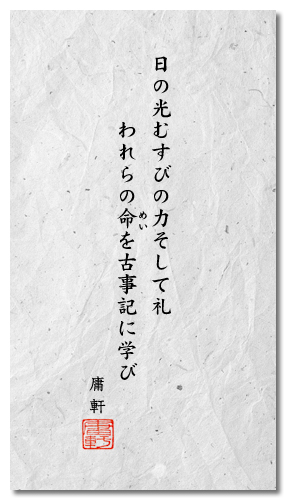 日の光むすびの力そして礼
われらの命を古事記に学び
めい
庸軒
庸軒